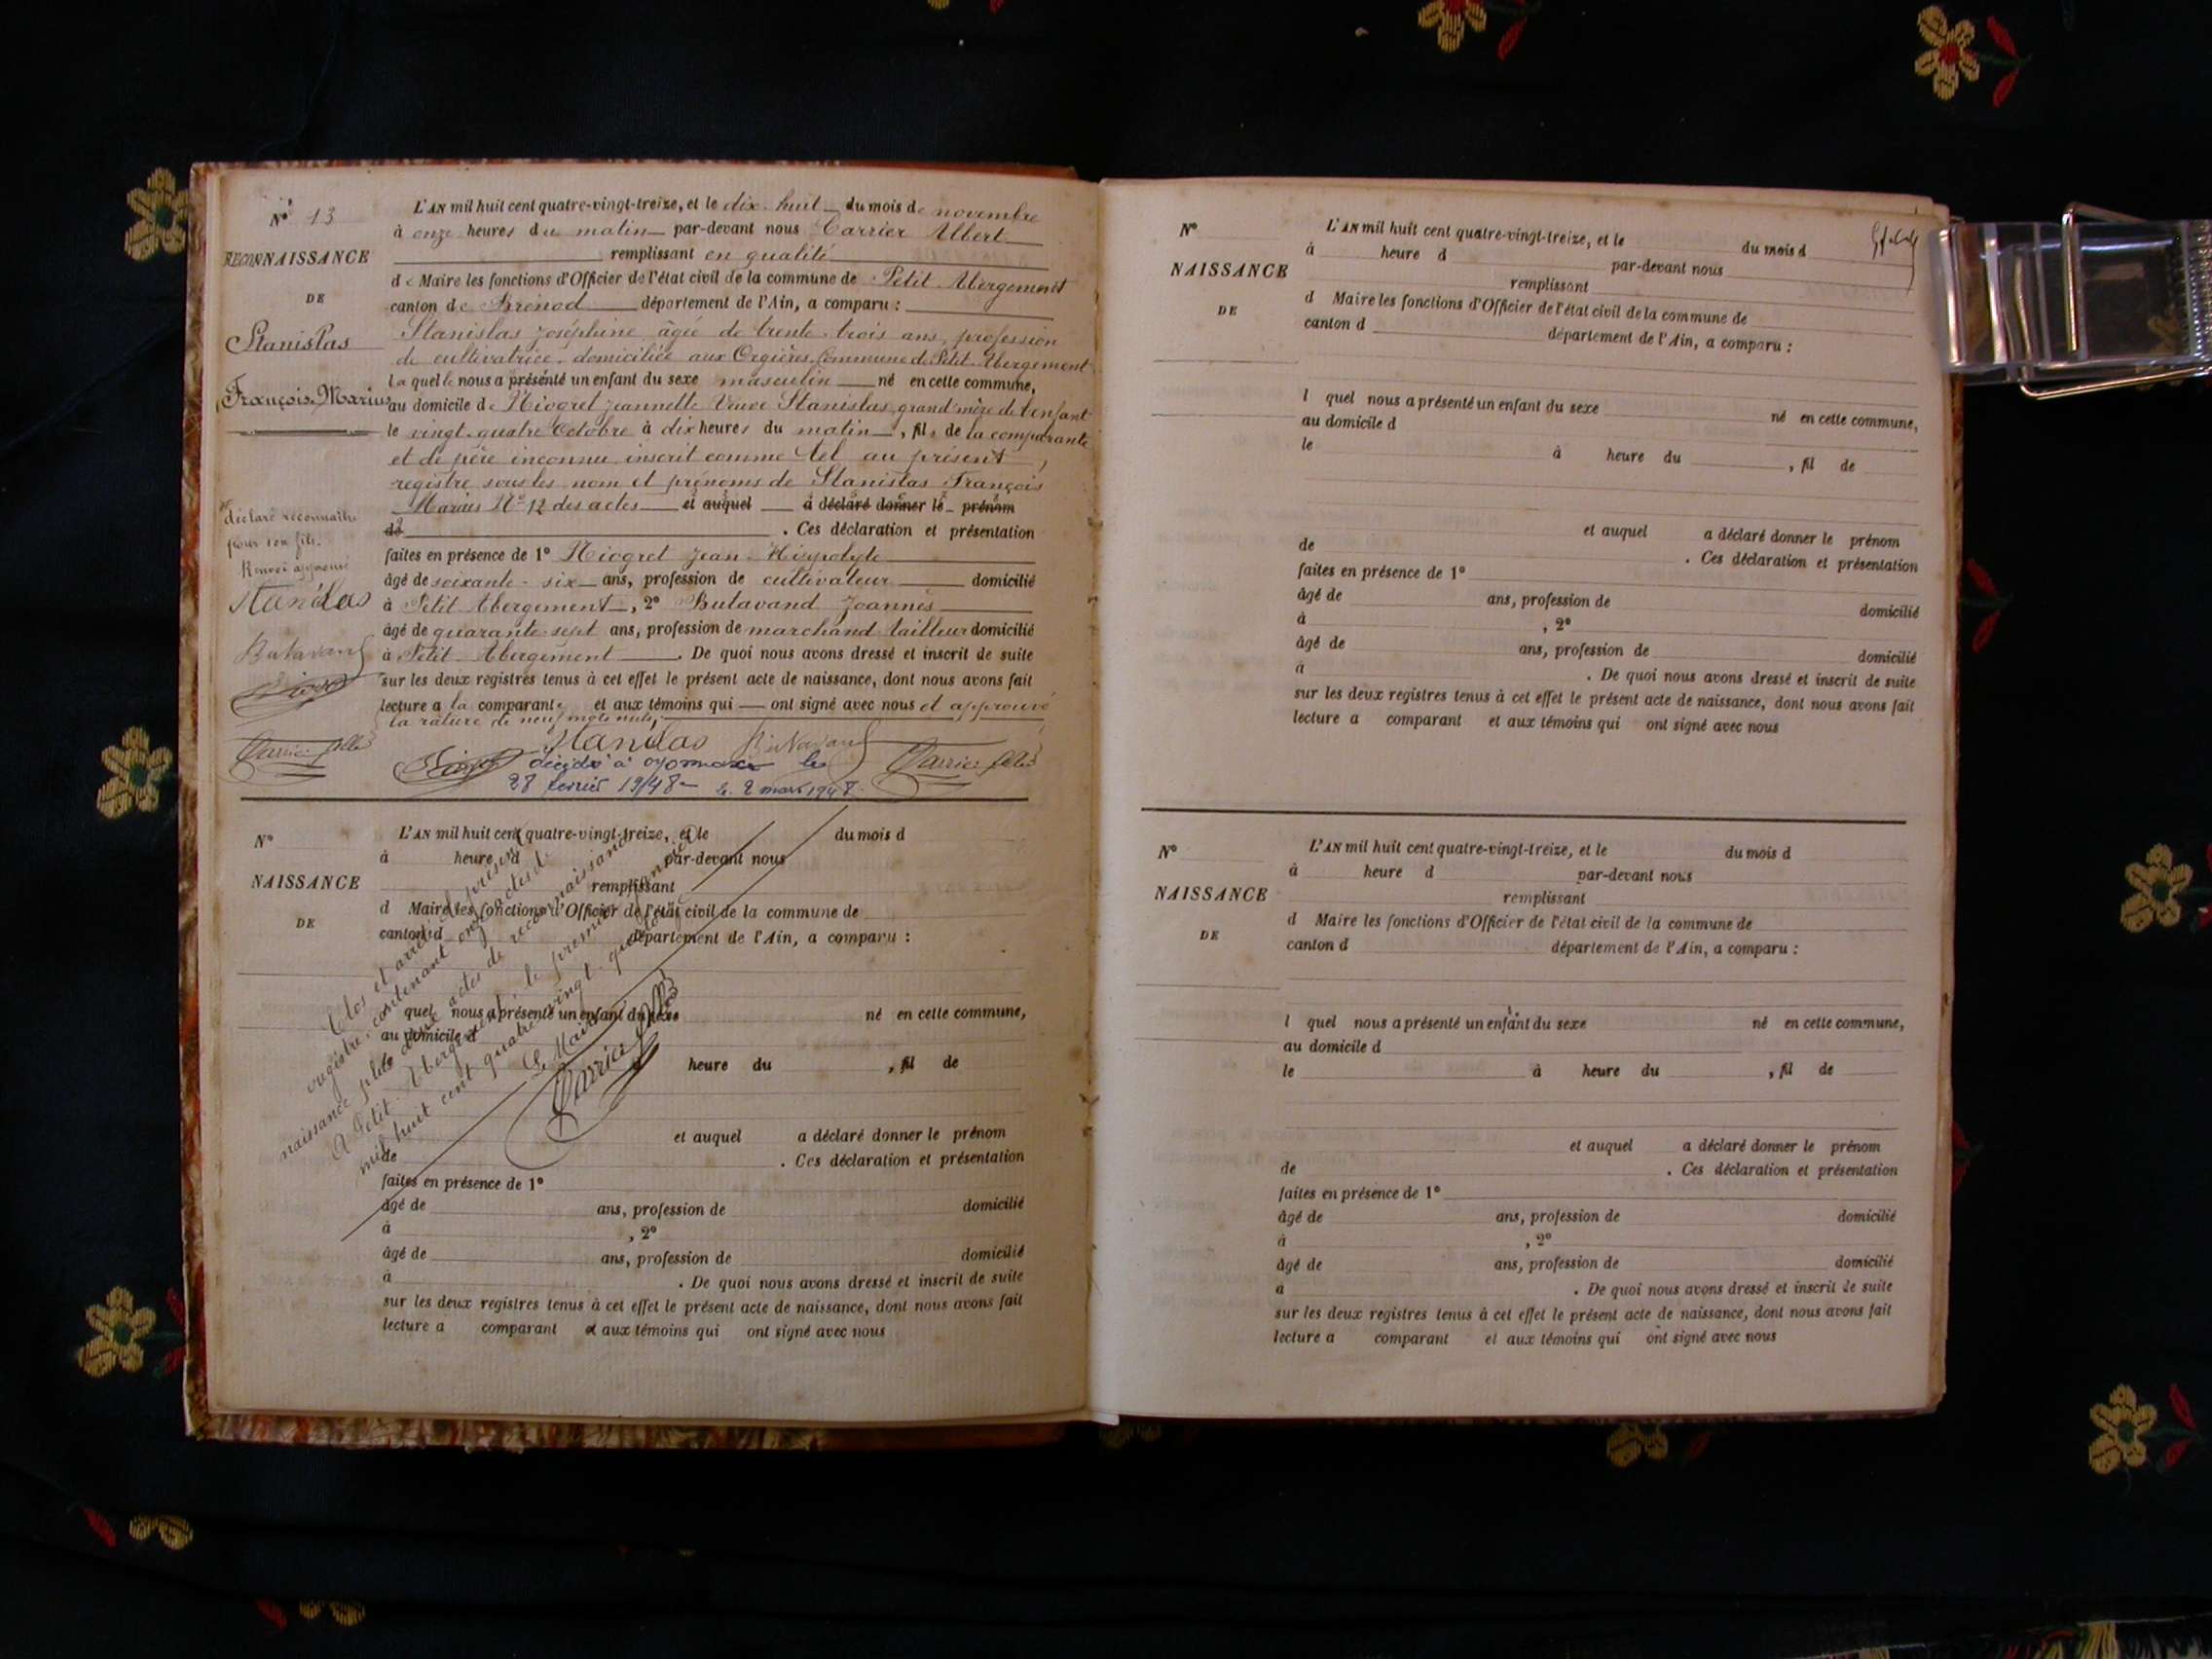 N° 13
RECONNAISSANCE
DE
Stanislas
François Marius
L'AN mil huit cent quatre-vingt-treize, et le dix-huit du mois de novembre
à onze heures du matin par-devant nous Carrier Albert
remplissant en qualité
de Maire les fonctions d'Officier de l'état civil de la commune de Petit Abergement
canton de Brénod département de l'Ain, a comparu :
Stanislas Joséphine âgée de trente-trois ans, profession
de cultivatrice, domiciliée aux Orgières, Commune de Petit Abergement
laquelle nous a présenté un enfant du sexe masculin né en cette commune,
au domicile de Niogret Jeannette Veuve Stanislas, grand'mère de l'enfant
le vingt-quatre Octobre à dix heures du matin, fils de la comparante
et de père inconnu, inscrit comme tel au présent
registre sous les nom et prénoms de Stanislas François
Marius N° 12 des actes et auquel a déclaré donner le prénom
de . Ces déclaration et présentation
faites en présence de 1° Niogret Jean-Hippolyte
âgé de soixante-six ans, profession de cultivateur domicilié
à Petit Abergement, 2° Butavand Joannès
âgé de quarante-sept ans, profession de marchand tailleur domicilié
à Petit Abergement. De quoi nous avons dressé et inscrit de suite
sur les deux registres tenus à cet effet le présent acte de naissance, dont nous avons fait
lecture a la comparante et aux témoins qui ont signé avec nous et approuvé
la rature de neuf mots nuls,
déclaré reconnaître
pour son fils.
Renvoi approuvé
Stanislas
Butavand
Stanislas Butavand
décédé à oyonnax le
28 février 1948 le 2 mars 1948.
N°
NAISSANCE
DE
L'AN mil huit cent quatre-vingt-treize, et le du mois d
à heure d par-devant nous
remplissant
d Maire les fonctions d'Officier de l'état civil de la commune de
canton d département de l'Ain, a comparu :
quel nous a présenté un enfant du sexe né en cette commune,
au domicile d
heure du , fil de
et auquel a déclaré donner le prénom
de . Ces déclaration et présentation
faites en présence de 1°
âgé de ans, profession de domicilié
à , 2°
âgé de ans, profession de domicilié
à . De quoi nous avons dressé et inscrit de suite
sur les deux registres tenus à cet effet le présent acte de naissance, dont nous avons fait
lecture a comparant et aux témoins qui ont signé avec nous
Clos et arrêté le présent
registre contenant onze actes de
naissance plus deux actes de reconnaissance
A Petit-Abergement le premier Janvier
mil huit cent quatre-vingt-quatorze
Le Maire
N°
NAISSANCE
DE
L'AN mil huit cent quatre-vingt-treize, et le du mois d
à heure d par-devant nous
remplissant
d Maire les fonctions d'Officier de l'état civil de la commune de
canton d département de l'Ain, a comparu :
l quel nous a présenté un enfant du sexe né en cette commune,
au domicile d
le à heure du , fil de
et auquel a déclaré donner le prénom
de . Ces déclaration et présentation
faites en présence de 1°
âgé de ans, profession de domicilié
à , 2°
âgé de ans, profession de domicilié
à . De quoi nous avons dressé et inscrit de suite
sur les deux registres tenus à cet effet le présent acte de naissance, dont nous avons fait
lecture a comparant et aux témoins qui ont signé avec nous
N°
NAISSANCE
DE
L'AN mil huit cent quatre-vingt-treize, et le du mois d
à heure d par-devant nous
remplissant
d Maire les fonctions d'Officier de l'état civil de la commune de
canton d département de l'Ain, a comparu :
l quel nous a présenté un enfant du sexe né en cette commune,
au domicile d
le à heure du , fil de
et auquel a déclaré donner le prénom
de . Ces déclaration et présentation
faites en présence de 1°
âgé de ans, profession de domicilié
à , 2°
âgé de ans, profession de domicilié
à . De quoi nous avons dressé et inscrit de suite
sur les deux registres tenus à cet effet le présent acte de naissance, dont nous avons fait
lecture a comparant et aux témoins qui ont signé avec nous